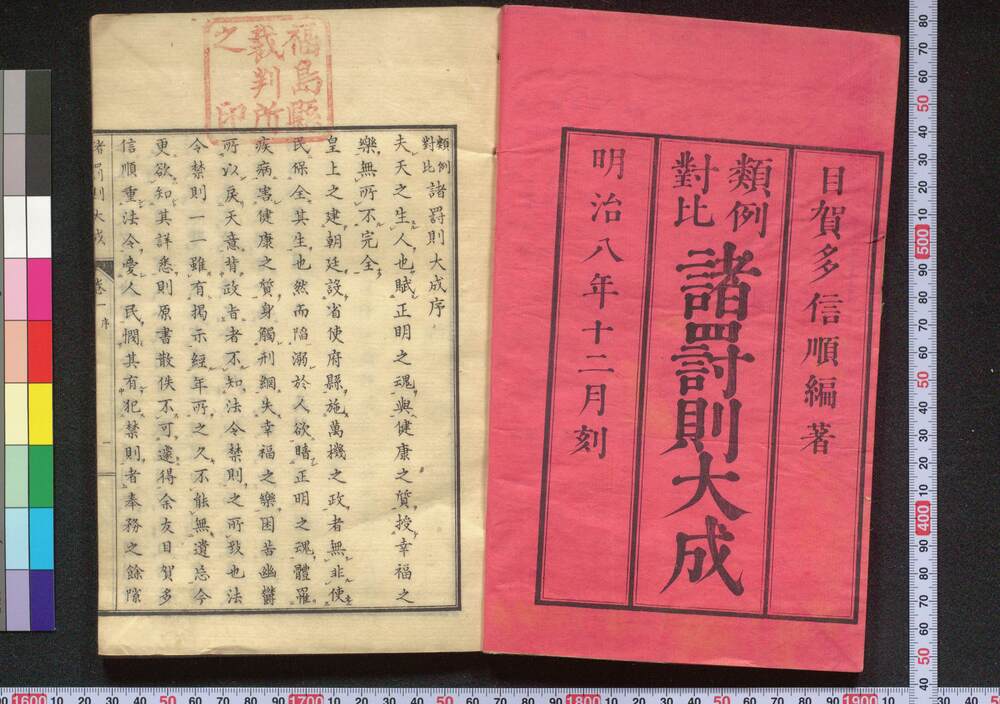 目賀多信順編著
類例
對比
諸罸則大成
明治八年十二月刻
福島縣
裁判所
之印
類例
對比
諸罸則大成序
夫天之生人也賦正明之魂與健康之質授幸福之
樂無所不完全
皇上之建朝廷設省使府縣施萬機之政者無非使
民保全其生也然而陷溺於人欲暗正明之魂體羅
疾病害健康之質身觸刑網失幸福之樂困苦幽鬱
所以戻天意背政者者不知法令禁則之所致也法
令禁則一一雖有揭示經年所之久不能無遺忘今
更欲知其詳悉則原書散佚不可遽得余友目賀多
信順重法令愛人民憫其有犯禁則者奉務之餘隙
諸罰則大成
卷一
序
一